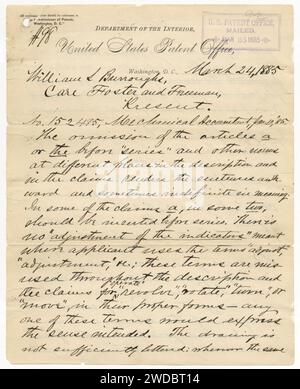 DEPARTMENT OF THE INTERIOR,
United States Patent Office,
#98
U. S. PATENT OFFICE,
MAILED.
Washington, D. C., March 24, 1885
William S Burroughs,
Care Foster and Freeman,
Present.
No. 152,485, Mechanical Accountant, Jan 10, 85
The omission of the articles a
or the before "series" and other nouns
at different places in the description and
in the claims renders the sentences awk
ward and sometimes indefinite in meaning
In some of the claims a, in some two,
should be inserted before series. There is
no "adjustment of the indicators" meant
when applicant uses the terms "adjust"
adjustment, &c.; these terms are mis
used throughout the description and
the claims for operate "revolve," "rotate," "turn," or
"move," in their proper forms – any
one of these terms would express
the sense intended. The drawing is
not sufficiently lettered; wherever the same
alamy
2WDBT14